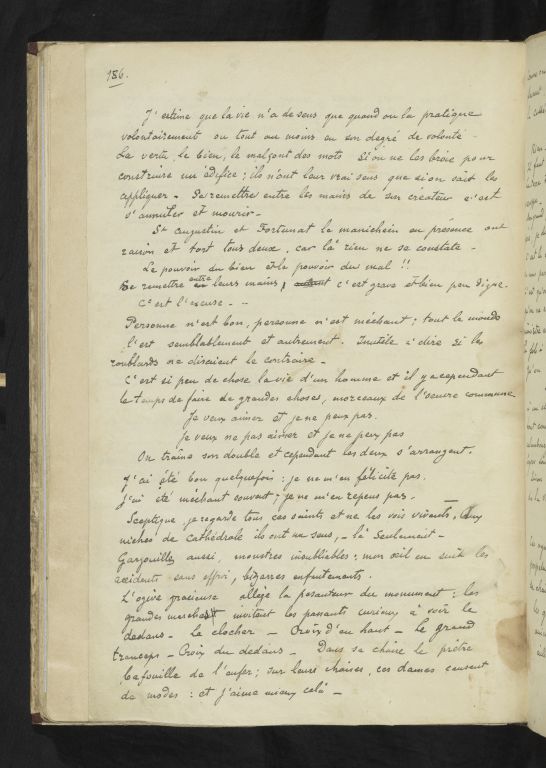 186.
J'estime que la vie n'a de sens que quand on la pratique
volontairement ou tout au moins en son degré de volonté -
La vertu, le bien, le mal sont des mots si on ne les broie pour
construire un édifice ; ils n'ont leur vrai sens que si on sait les
appliquer - Se remettre entre les mains de son créateur c'est
s'annuler et mourir -
St Augustin et Fortunat le manichéin en présence ont
raison et tort tous deux, car là rien ne se constate -
Le pouvoir du bien et le pouvoir du mal !!
Se remettre entre leurs mains, c'est grave et bien peu digne.
C'est l'excuse - - -
Personne n'est bon, personne n'est méchant ; tout le monde
l'est semblablement et autrement. Inutile à dire si les
roublards ne disaient le contraire -
C'est si peu de chose la vie d'un homme et il y a cependant
le temps de faire de grandes choses, morceaux de l'œuvre commune
Je veux aimer et je ne peux pas.
Je veux ne pas aimer et je ne peux pas
On traîne son double et cependant les deux s'arrangent.
J'ai été bon quelquefois : je ne m'en félicite pas.
J'ai été méchant souvent ; je ne m'en repens pas.
Sceptique je regarde tous ces saints et ne les vois vivants. Aux
niches de cathédrale ils ont un sens, - là seulement -
Gargouilles aussi, monstres inoubliables : mon œil en suit les
accidents sans effroi, bizarres enfantements.
L'ogive gracieuse allège la pesanteur du monument : les
grandes marches invitent les passants curieux à voir le
dedans - Le clocher - Croix d'en haut - Le grand
transept - Croix du dedans - Dans sa chaire le prêtre
bafouille de l'enfer ; sur leurs chaises, ces dames causent
de modes : et j'aime mieux celà -